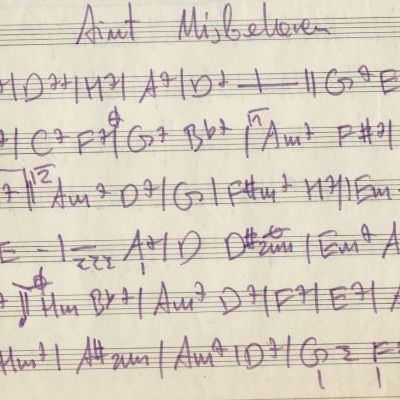 Aint Misbehaven
7| D7+| H7| A7| D7 —|—|| G7 E
7| C7 F7| G7 Bb7 |1 Am7 F#7|
7 ||2 Am7 D7| G| F#m7 H7|| Em
E -|- A7| D D# | Em7 A
Hm Bb7| Am7 D7| F7| E7|
Hm7| A# | Am7 |D7| G F